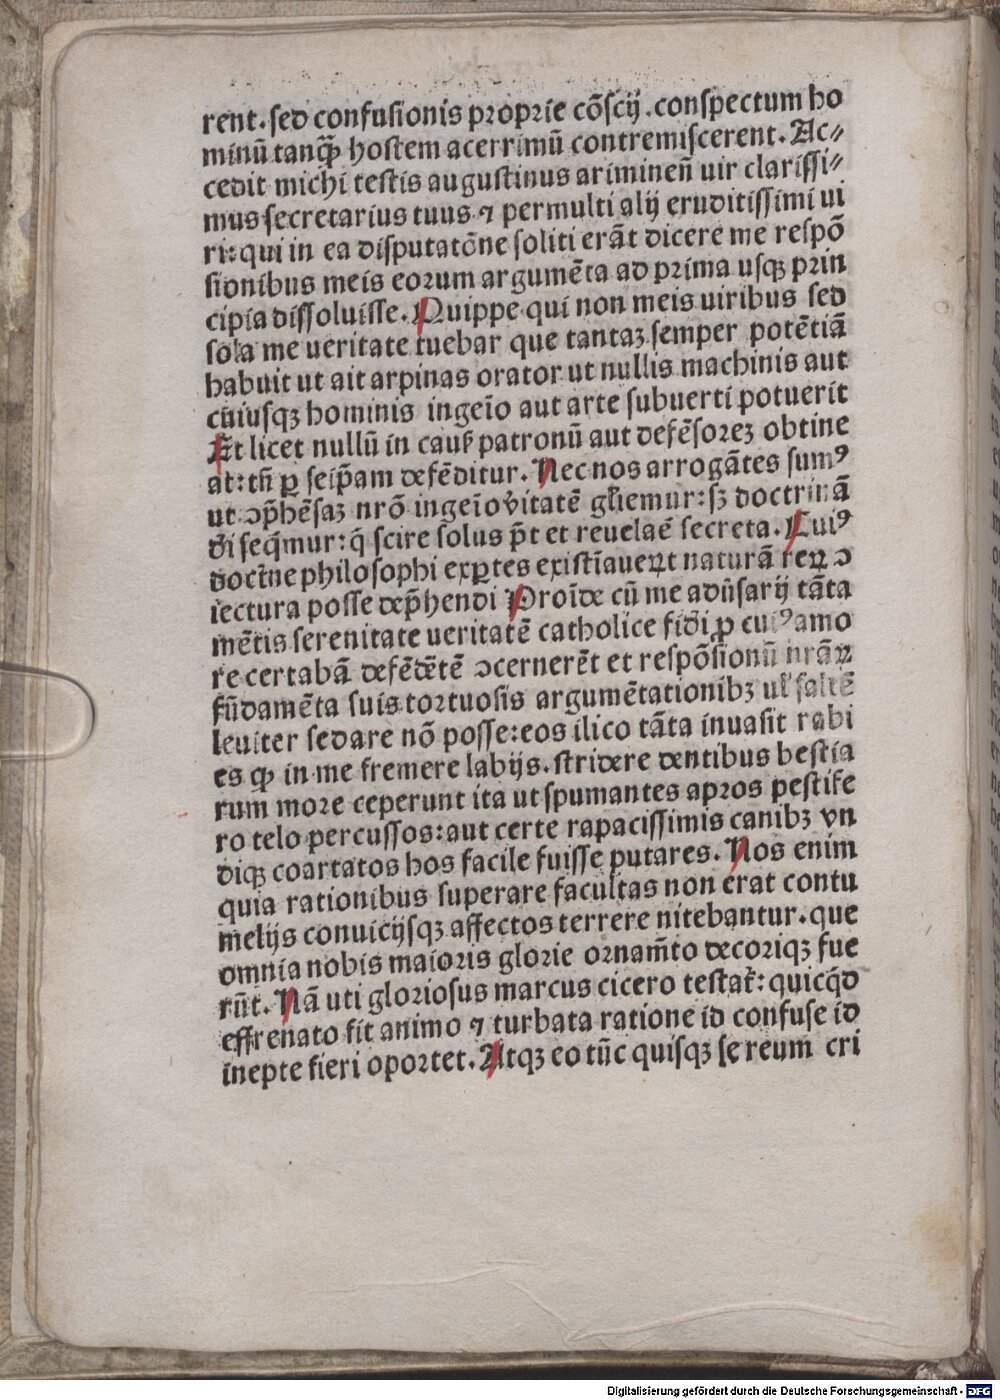 rent. sed confusionis proprie cõscij. conspectum ho
minũ tanqꝫ hostem acerrimũ contremiscerent. Ac⸗
cedit michi testis augustinus ariminen̄ uir clarissi⸗
mus secretarius tuus ⁊ permulti alij eruditissimi ui
ri: qui in ea disputatõne soliti erãt dicere me respõ
sionibus meis eorum argumẽta ad prima usqꝫ prin
cipia dissoluisse. Quippe qui non meis uiribus sed
sola me ueritate tuebar que tantaꝫ semper potẽtiã
habuit ut ait arpinas orator ut nullis machinis aut
cuiusqꝫ hominis ingeĩo aut arte subuerti potuerit
Et licet nullũ in caus̃ patronũ aut defẽsoreꝫ obtine
at: tñ ꝑ seip̃am defẽditur. Nec nos arrogãtes sumꝰ
ut ↄp̃hẽsaꝫ nrõ ingeĩo v̾itatẽ gl̃iemur: sꝫ doctrinã
dĩ seq̃mur: q̃ scire solus p̃t et reuelar̃ secreta. Cuiꝰ
doct̾ne philosophi exꝑtes existĩaueꝝt naturã reꝝ ↄ
iectura posse dep̃hendi Proĩde cũ me adũsarij tãta
mẽtis serenitate ueritatẽ catholice fid̾i ꝓ cuiꝰ amo
re certabã defẽdẽtẽ ↄcernerẽt et respõsionũ nrãꝝ
fũdamẽta suis tortuosis argumẽtationibꝫ ul̃ saltẽ
leuiter sedare nõ posse: eos ilico tãta inuasit rabi
es ꝙ in me fremere labijs. stridere dentibus bestia
rum more ceperunt ita ut spumantes apros pestife
ro telo percussos: aut certe rapacissimis canibꝫ vn
diqꝫ coartatos hos facile fuisse putares. Nos enim
quia rationibus superare facultas non erat contu
melijs conuicijsqꝫ affectos terrere nitebantur. que
omnia nobis maioris glorie ornam̃to decoriqꝫ fue
rũt. Nã uti gloriosus marcus cicero testat̾: quicq̃d
effrenato fit animo ⁊ turbata ratione id confuse id
inepte fieri oportet. Atqꝫ eo tũc quisqꝫ se reum cri
Digitalisierung gefördert durch die Deutsche Forschungsgemeinschaft - DFG